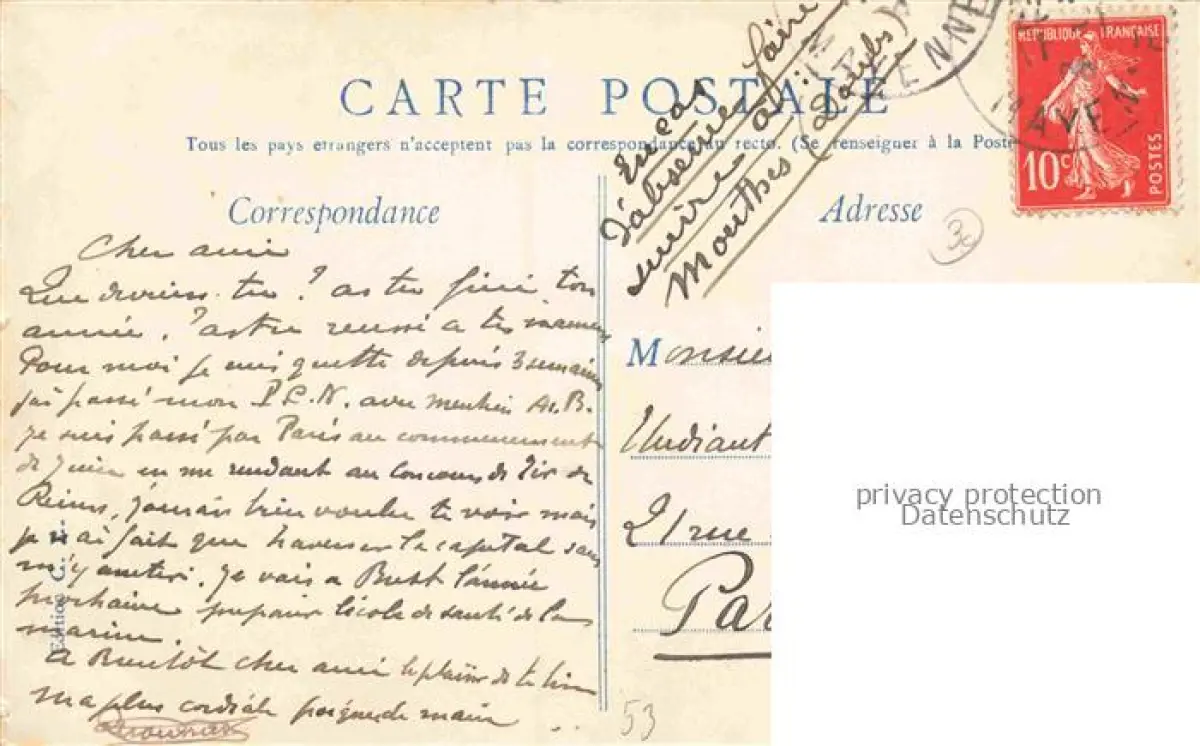 CARTE POSTALE
Tous les pays etrangers n'acceptent pas la correspondance au recto. (Se renseigner à la Poste
Correspondance
Cher ami
Que deviens-tu ? as tu fini ton
année, ? as tu reussi a tes examens
Pour moi je suis quitte depuis 3 semaines
j'ai passé mon P.C.N. avec mention A.B.
je suis passé par Paris au commencement
de Juin en me rendant au Concours de Tir de
Reims, j'aurais bien voulu te voir mais
je n'ai fait que traverser la capital sans
m'y arreter. Je vais a Brest l'année
prochaine preparer l'école de santé de la
marine.
A Bientôt cher ami le plaisir de te lire
ma plus cordiale poignée de main
Edition C.
53
En cas
d'absence faire
suivre à :
Mouthes (Doubs)
Adresse
30
REPUBLIQUE FRANÇAISE
10c
POSTES
MAYENNE
Monsie
Etudiant
21 rue
Par
privacy protection
Datenschutz